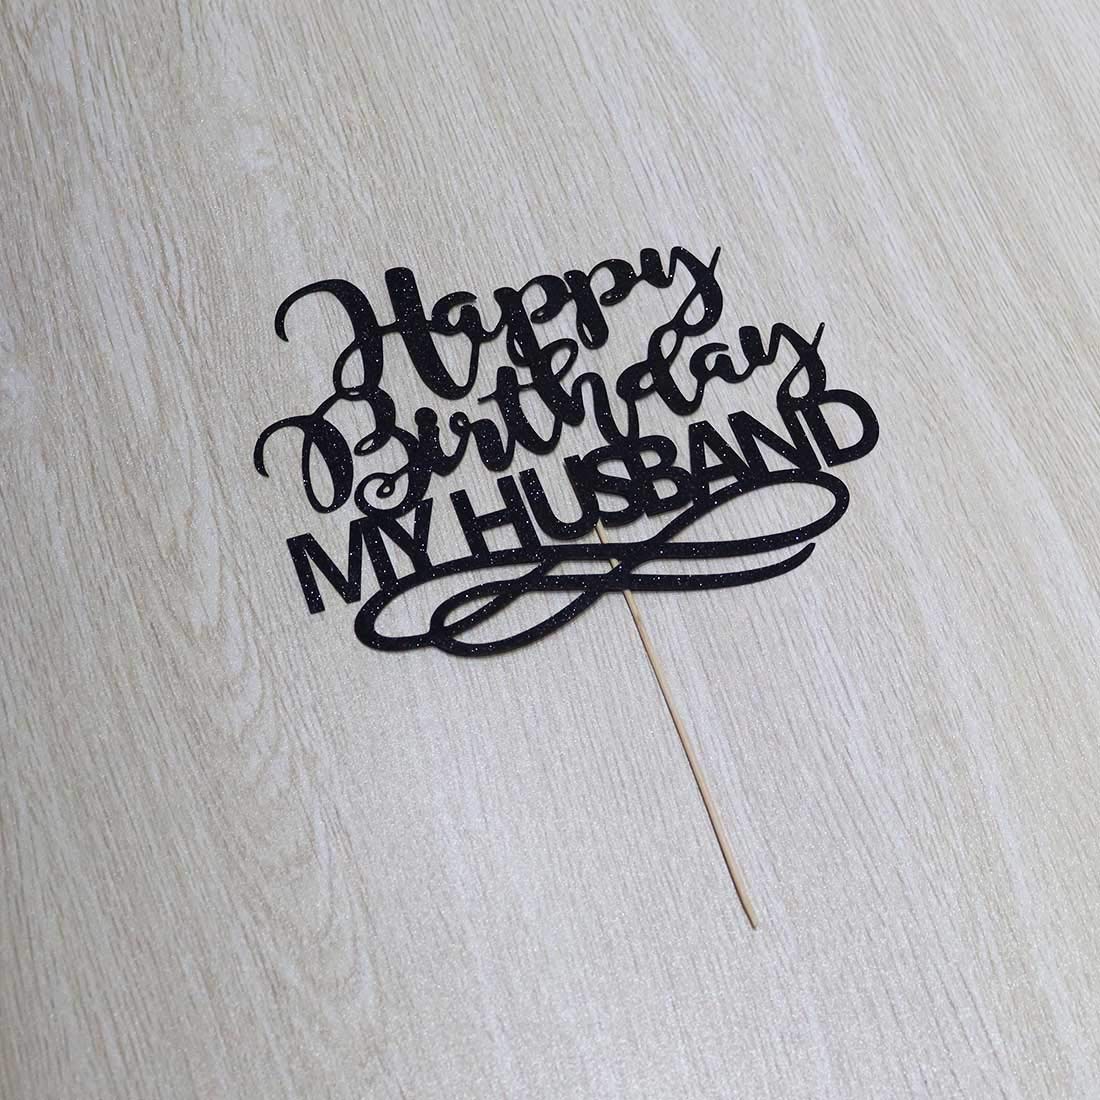 Happy
Birthday
MY HUSBAND